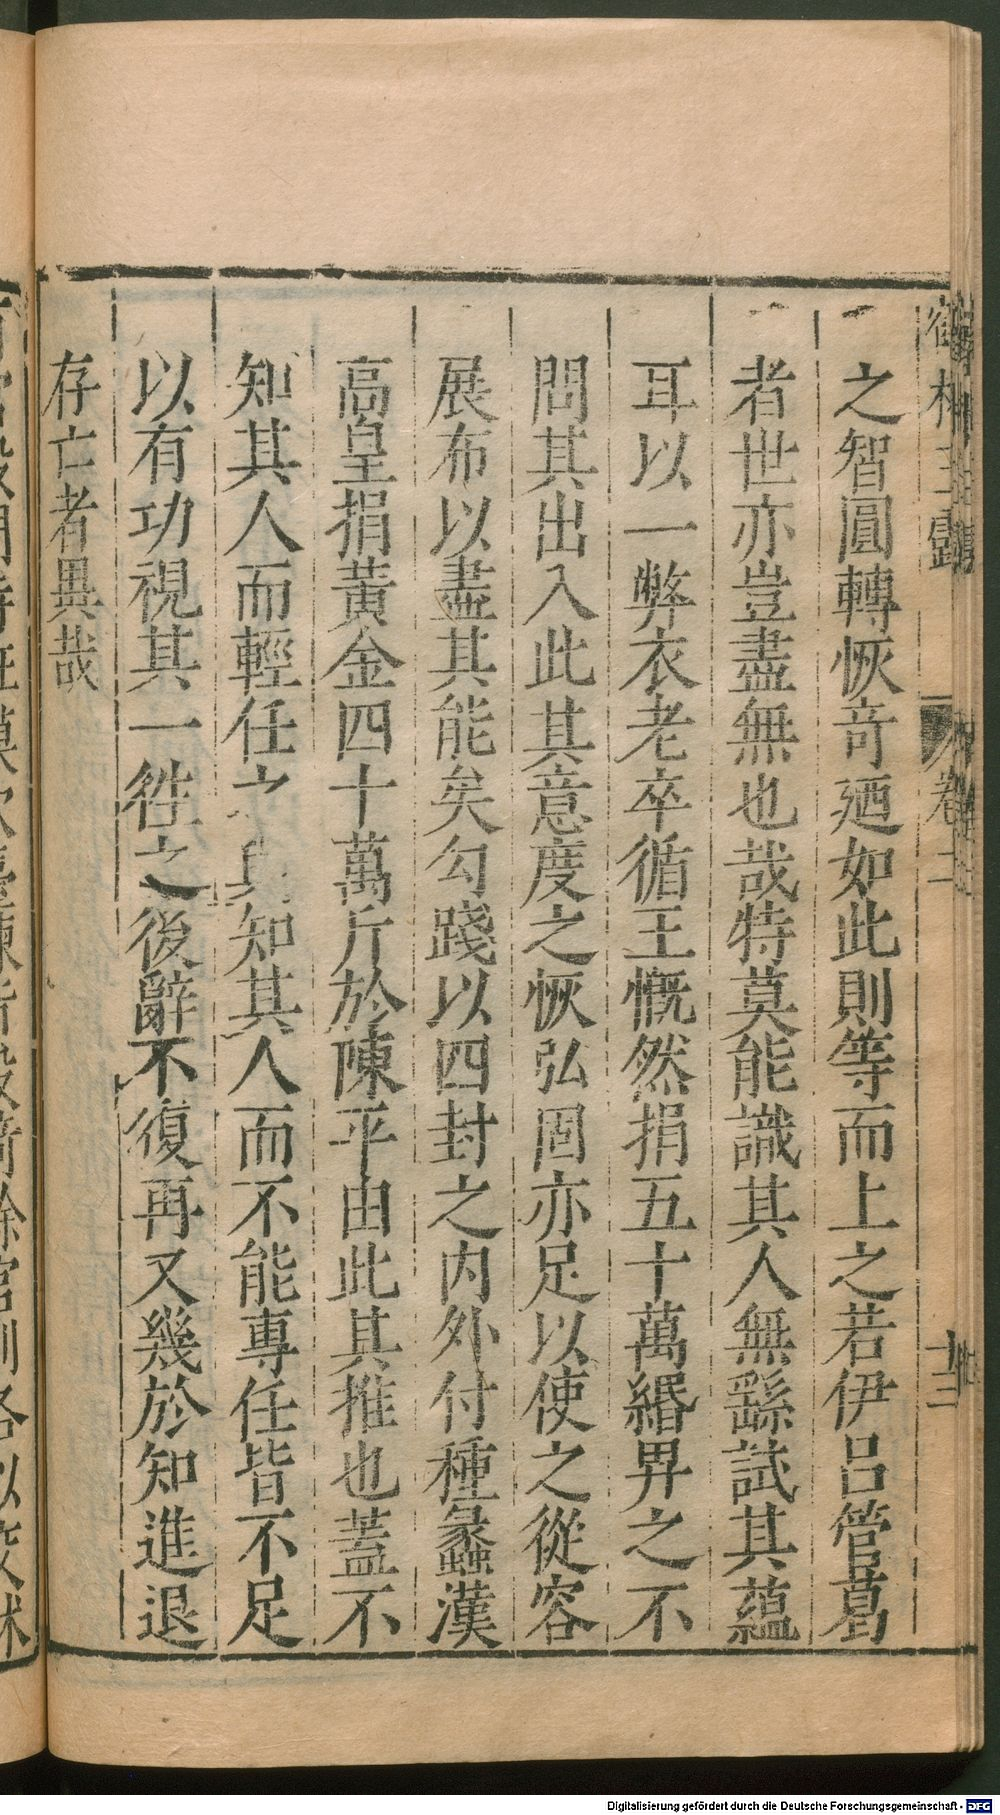 之智圓轉恢竒廼如此則等而上之若伊呂管葛
者世亦豈盡無也哉特莫能識其人無繇試其蘊
耳以一弊衣老卒循王慨然捐五十萬緡畀之不
問其出入此其意度之恢弘固亦足以使之從容
展布以盡其能矣勾踐以四封之内外付種蠡漢
高皇捐黃金四十萬斤於陳平由此其推也蓋不
知其人而輕任之與知其人而不能專任皆不足
以有功視其一徃之後辭不復再又幾於知進退
存亡者異哉
卷二
十三
Digitalisierung gefördert durch die Deutsche Forschungsgemeinschaft - DFG